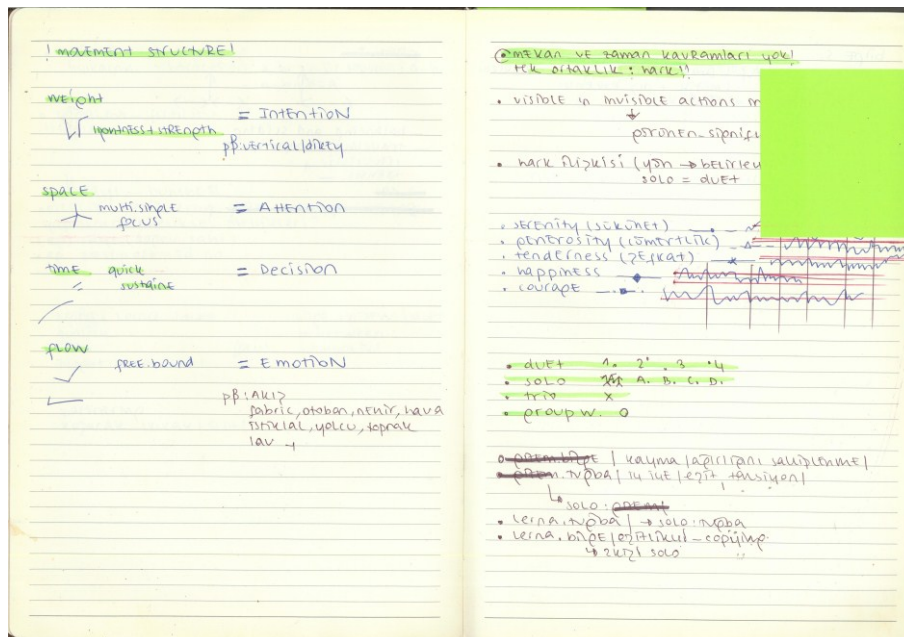 ! MOVEMENT STRUCTURE!
WEIGHT
LIGHTNESS + STRENGTH = INTENTION
pB:VERTICAL/DIKEY
SPACE
MULTI.SINGLE = ATTENTION
FOCUS
TIME QUICK = DECISION
SUSTAINE
FLOW
FREE.BOUND = EMOTION
pB:AKIŞ
FABRIC, OTOBAN, NEHIR, HAVA
ISTIKLAL, YOLCU, TOPRAK
LAV
MEKAN VE ZAMAN KAVRAMLARI YOK!
TEK ORTAKLIK : HARK!!
• VISIBLE IN INVISIBLE ACTIONS
GÖRÜNEN_
• HARK ILIŞKISI (YÖN →
SOLO = DUET
• SERENITY (SÜKÛNET)
• GENEROSITY (CÖMERTLIK)
• TENDERNESS (ŞEFKAT)
• HAPPINESS
• COURAGE
• DUET 1. 2. 3 .4
• SOLO A. B. C. D.
• TRIO X
• GROUP W. O
| KAYMA |
TUĞBA | IÇ IÇE | EŞIT, TANSIYON |
SOLO:
• LERNA.TUĞBA | → SOLO:TUĞBA
• LERNA.BILGE | - COPYING
SOLO